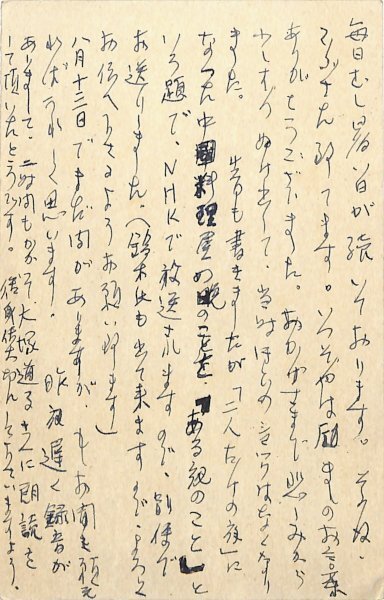 毎日むし暑い日が続いております。その後
ごぶさた致してます。いつぞやは励ましのお言葉
ありがとうございました。おかげさまで悲しみから
少しずつぬけ出して、当時ほどの
ました。 昔も書きましたが「二人だけの夜」に
なった中國料理屋の晩のことを「ある親のこと」と
いう題で、NHKで放送されますので、別便で
お送りしました。(鈴木氏も出て来ますので、よろしく
お伝え下さるようお願い致します)
八月十三日でまだ間がありますが、もしお聞き願え
ればうれしく思います。 昨夜遅く録音が
ありまして、二時間もかかって大塚道子さんに朗読を
して頂いたところです。